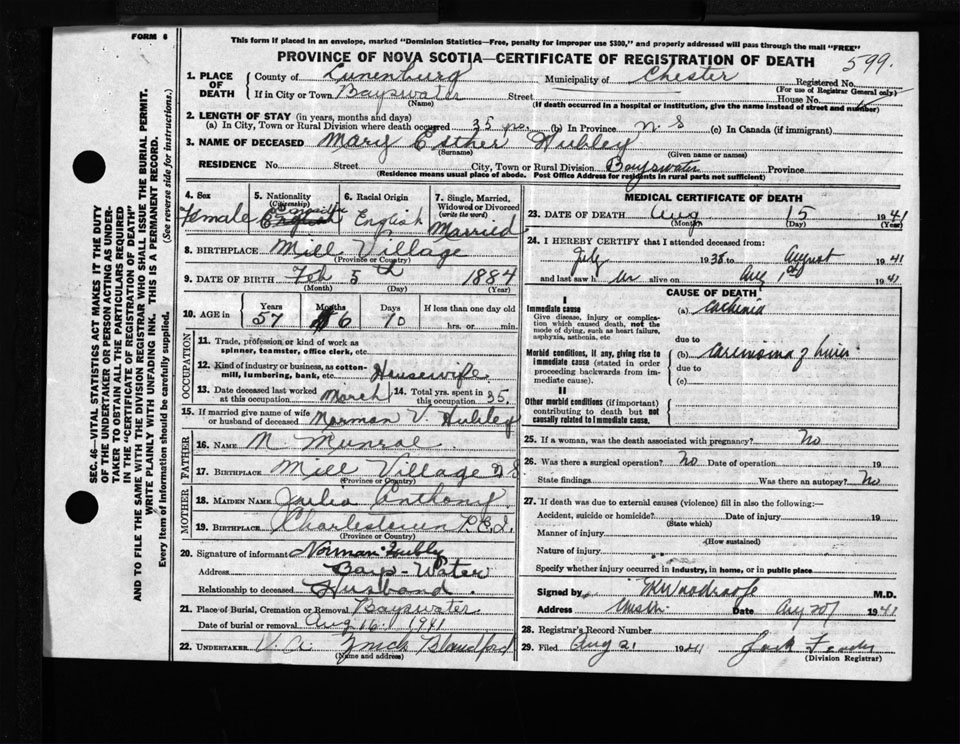 FORM 6
This form if placed in an envelope, marked "Dominion Statistics—Free, penalty for improper use $300," and properly addressed will pass through the mail "FREE"
PROVINCE OF NOVA SCOTIA—CERTIFICATE OF REGISTRATION OF DEATH
599
1. PLACE OF DEATH
County of Lunenburg Municipality of Chester Registered No.
(For use of Registrar General only)
If in City or Town Bayswater Street House No.
(Name) (If death occurred in a hospital or institution, give the name instead of street and number)
2. LENGTH OF STAY (in years, months and days)
(a) In City, Town or Rural Division where death occurred 35 yrs. (b) In Province N. S (c) In Canada (if immigrant)
3. NAME OF DECEASED Mary Esther Hubley
(Surname) (Given name or names)
RESIDENCE No. Street City, Town or Rural Division Bayswater Province
(Residence means usual place of abode. Post Office Address for residents in rural parts not sufficient)
4. Sex Female
5. Nationality (Citizenship) English
6. Racial Origin English
7. Single, Married, Widowed or Divorced (write the word) Married
8. BIRTHPLACE Mill Village
(Province or Country)
9. DATE OF BIRTH Feb 5th 1884
(Month) (Day) (Year)
10. AGE in Years 57 Months 6 Days 10 If less than one day old
hrs. or min.
OCCUPATION
11. Trade, profession or kind of work as spinner, teamster, office clerk, etc.
12. Kind of industry or business, as cotton-mill, lumbering, bank, etc. Housewife
13. Date deceased last worked at this occupation March
14. Total yrs. spent in this occupation 35.
15. If married give name of wife or husband of deceased Norman V. Hubley
FATHER
16. NAME N. Munroe
17. BIRTHPLACE Mill Village N S
(Province or Country)
MOTHER
18. MAIDEN NAME Julia Anthony
19. BIRTHPLACE Charlestown P. E. I.
(Province or Country)
20. Signature of informant Norman Hubly
Address Bays-Water
Relationship to deceased Husband
21. Place of Burial, Cremation or Removal Bayswater
Date of burial or removal Aug 16. 1941
22. UNDERTAKER V. A. Zinck Blandford
(Name and address)
MEDICAL CERTIFICATE OF DEATH
23. DATE OF DEATH Aug 15 1941
(Month) (Day) (Year)
24. I HEREBY CERTIFY that I attended deceased from:
July 1938 to August 1941
and last saw h er alive on Aug 1st 1941
CAUSE OF DEATH
I
Immediate cause (a) Cachexia
Give disease, injury or complication which caused death, not the mode of dying, such as heart failure, asphyxia, asthenia, etc.
due to
Morbid conditions, if any, giving rise to immediate cause (stated in order proceeding backwards from immediate cause).
(b) Carcinoma of Liver
due to
(c)
II
Other morbid conditions (if important) contributing to death but not causally related to immediate cause.
25. If a woman, was the death associated with pregnancy? No
26. Was there a surgical operation? No Date of operation 19
State findings Was there an autopsy? No
27. If death was due to external causes (violence) fill in also the following:—
Accident, suicide or homicide? Date of injury 19
(State which)
Manner of injury
(How sustained)
Nature of injury
Specify whether injury occurred in industry, in home, or in public place
Signed by Woodroofe M.D.
Address Date Aug 20 1941
28. Registrar's Record Number
29. Filed Aug 21 1941 Jack
(Division Registrar)
SEC. 46—VITAL STATISTICS ACT MAKES IT THE DUTY
OF THE UNDERTAKER OR PERSON ACTING AS UNDER-
TAKER TO OBTAIN ALL THE PARTICULARS REQUIRED
IN THE "CERTIFICATE OF REGISTRATION OF DEATH"
AND TO FILE THE SAME WITH THE DIVISION REGISTRAR WHO SHALL ISSUE THE BURIAL PERMIT.
WRITE PLAINLY WITH UNFADING INK. THIS IS A PERMANENT RECORD.
Every item of information should be carefully supplied. (See reverse side for instructions.)